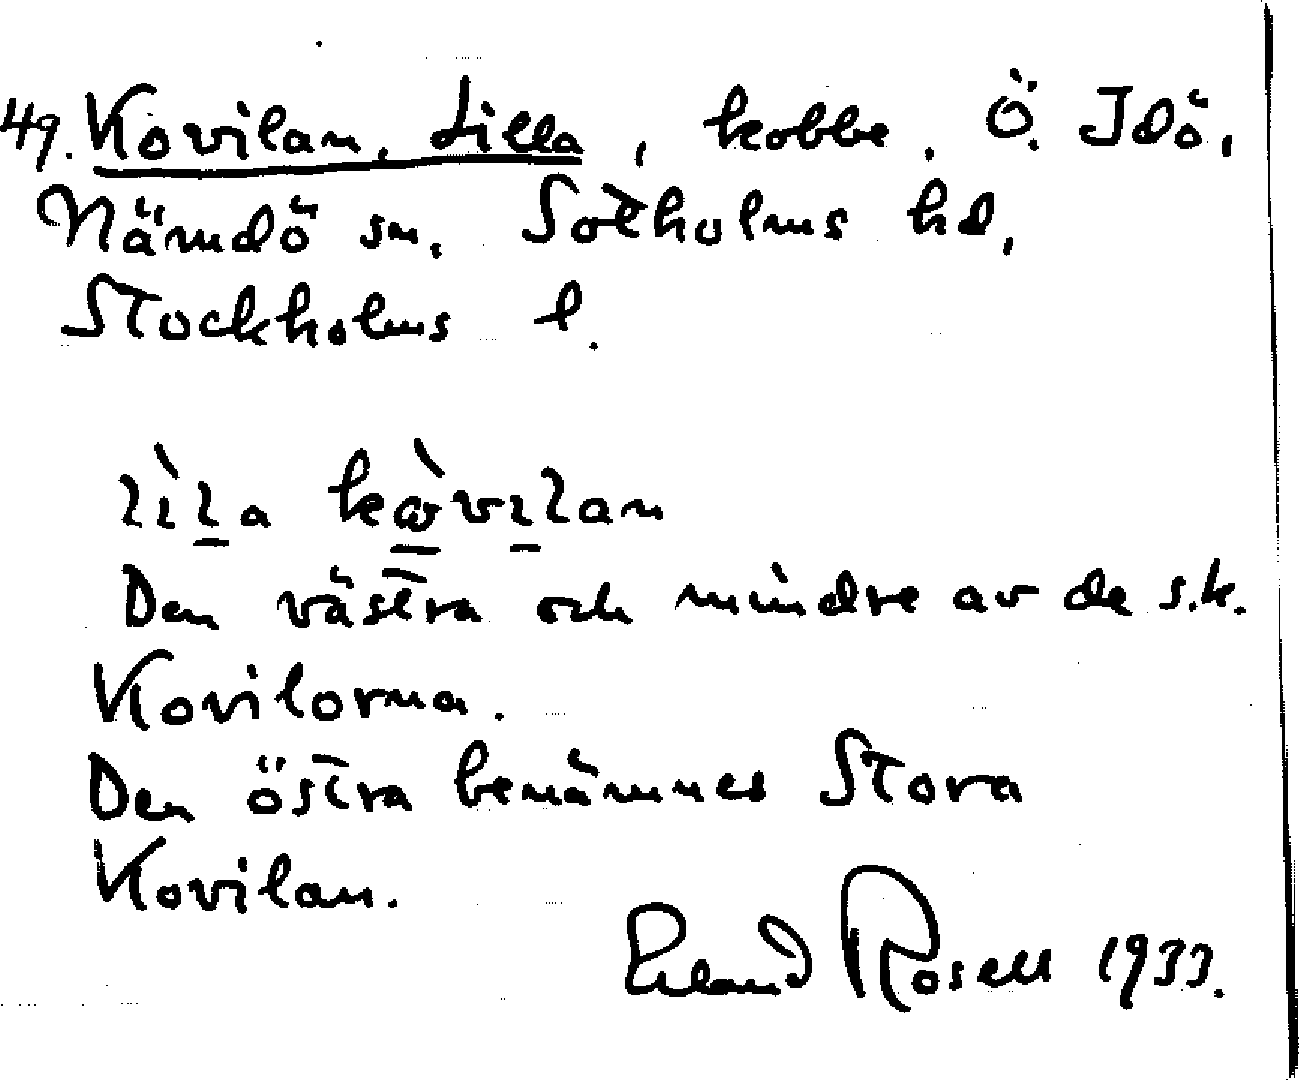 49. Kovilan, Lilla, kobbe, Ö. Idö,
Nämdö sn. Sotholms hd,
Stockholms l.
lìl̲a kὼ̲vı̲lan
Den västra och mindre av de s.k.
Kovilorna.
Den östra benämnes Stora
Kovilan.
Erland Rosell 1933.